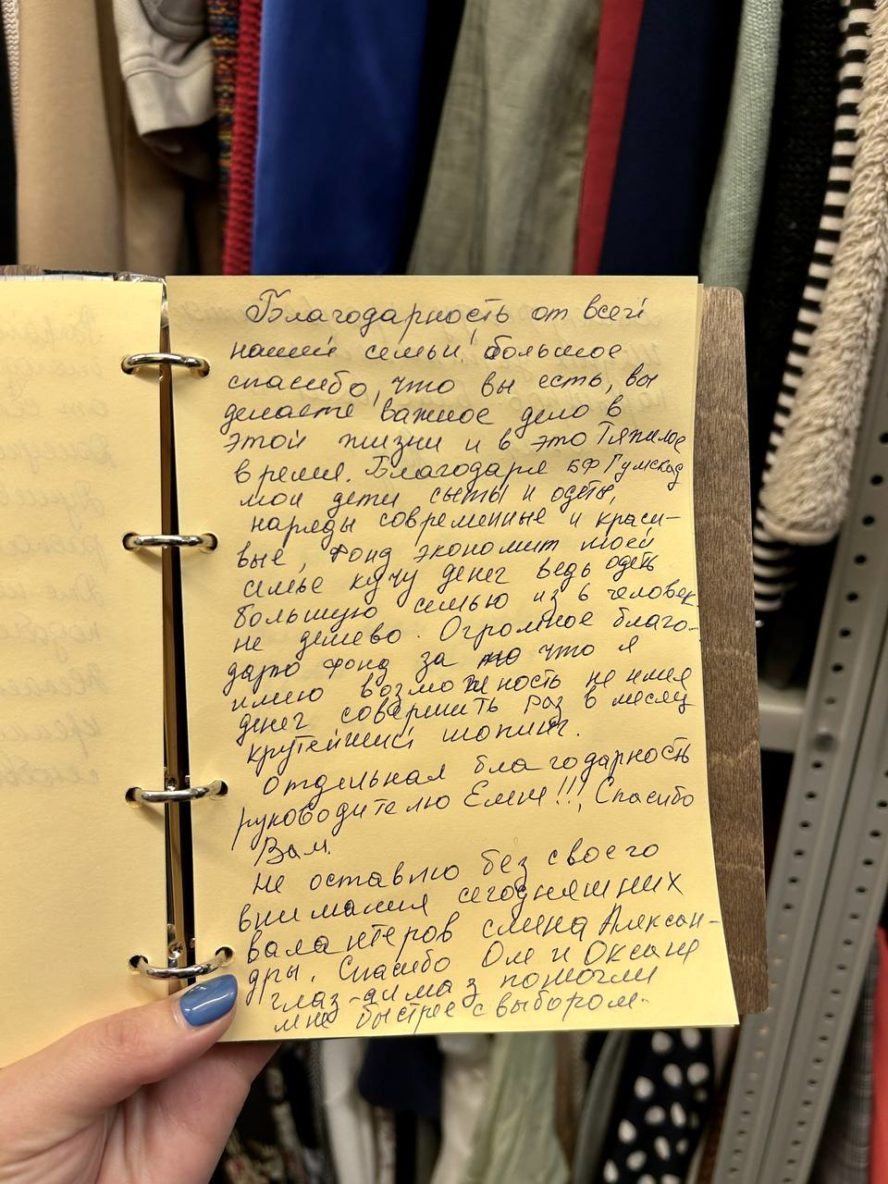 Благодарность от всей
нашей семьи! большое
спасибо, что вы есть, вы
делаете важное дело в
этой жизни и в это тяжелое
время. Благодаря БФ Гумсклад
мои дети сыты и одеты,
наряды современные и краси-
вые, Фонд экономит моей
семье кучу денег ведь одеть
большую семью из 6 человек
не дешево. Огромное благо-
дарю фонд за то что я
имею возможность не имея
денег совершить раз в месяц
крутейший шопинг.
Отдельная благодарность
руководителю Елене!!!, Спасибо
Вам.
Не оставлю без своего
внимания сегодняшних
валантеров смена Алексан-
дры. Спасибо Оле и Оксане
глаз-алмаз помогли
мне быстрее с выбором.